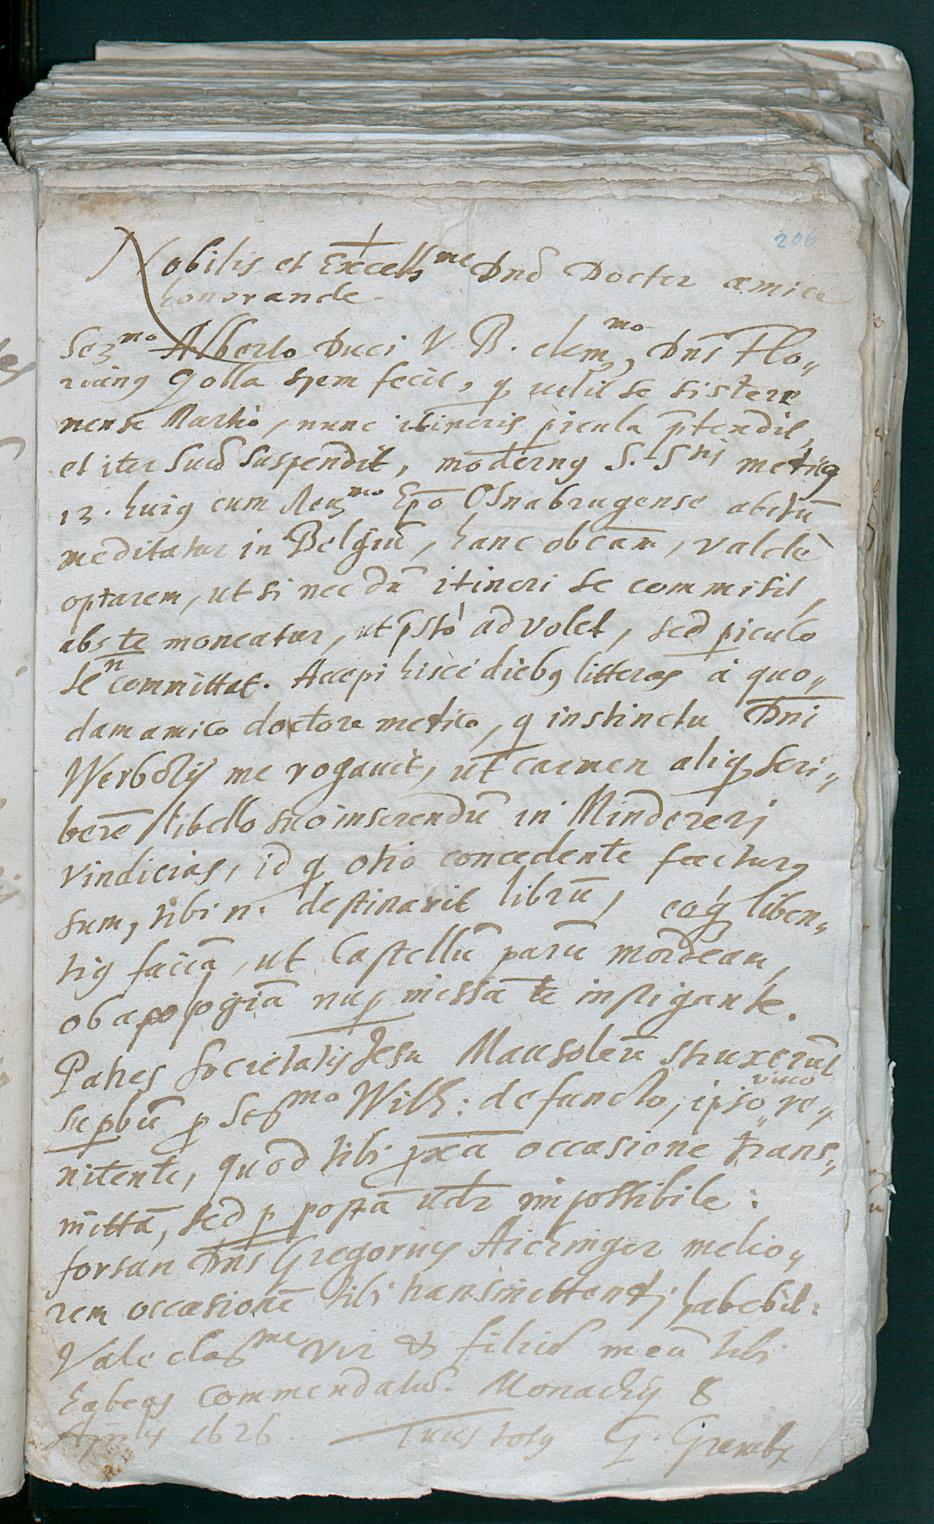 206
Nobilis et Excell^me Dnē Doctor amice
honorande.
Ser^mo Alberto Duci V. B. clem^mo, Dns Flo„
rianꝰ Golla spem fecit, q̄ uelit se sistere
mense Martio, nunc itineris picula p̄tendit,
et iter suū suspendit, modernꝰ S. S^tis
13. huiꝰ cum Reu^mo Ep̄o Osnabrugense abitū
meditatur in Belgiū, hanc ob cām, valdè
optarem, ut si nec dū itineri se commisit,
abs te moneatur, ut p̄stò advolet, sed piculo
se n̄ committat. Accepi hisce diebꝰ litteras à quo„
dam amico doctore medico, q instinctu Dni
me rogauit, ut carmen aliq̄ scri„
berē libello suo inserendū in Mindereri
vindicias, id q̄ otio concedente facturꝰ
sum, tibi n. destinavit librū, eoq̄ liben„
tiꝰ faciā, ut Castellū parū mordeam,
ob apologiā nuꝑ missā te instigante.
Patres Societatis Jesu Mausoleū struxerūt
suꝑbū ꝑ Ser^mo Wilh: defuncto, ipso vivo re„
nitente, quod tibi p̄xīā occasione trans„
mittā, sed ꝑ postā impossibile:
forsan Dns Gregoriꝰ Aichinger melio„
rem occasionē tibi transmittendi habebit:
Vale claris^me Vir & filiū meū tibi
habeas commendatū. Monachij 8
Aprilis 1626. Tuus totꝰ G.